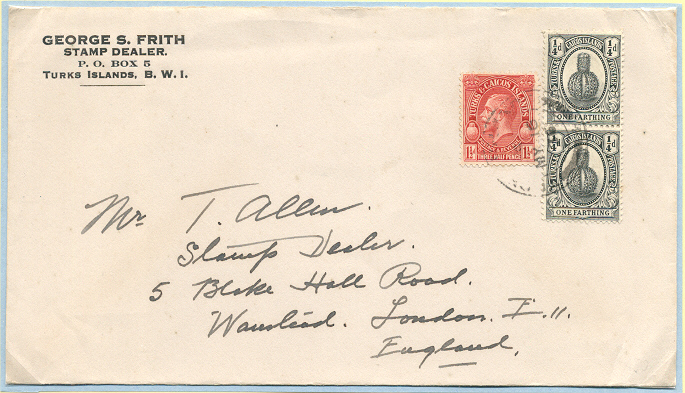 GEORGE S. FRITH
STAMP DEALER.
P. O. BOX 5
TURKS ISLANDS, B. W. I.
TURKS & CAICOS ISLANDS
1½d 1½d
THREE HALF PENCE
¼d ¼d
TURKS & CAICOS ISLANDS POSTAGE
ONE FARTHING
¼d ¼d
TURKS & CAICOS ISLANDS POSTAGE
ONE FARTHING
Mr T. Allen.
Stamp Dealer.
5 Blake Hall Road.
Wanstead. London. E. 11.
England.